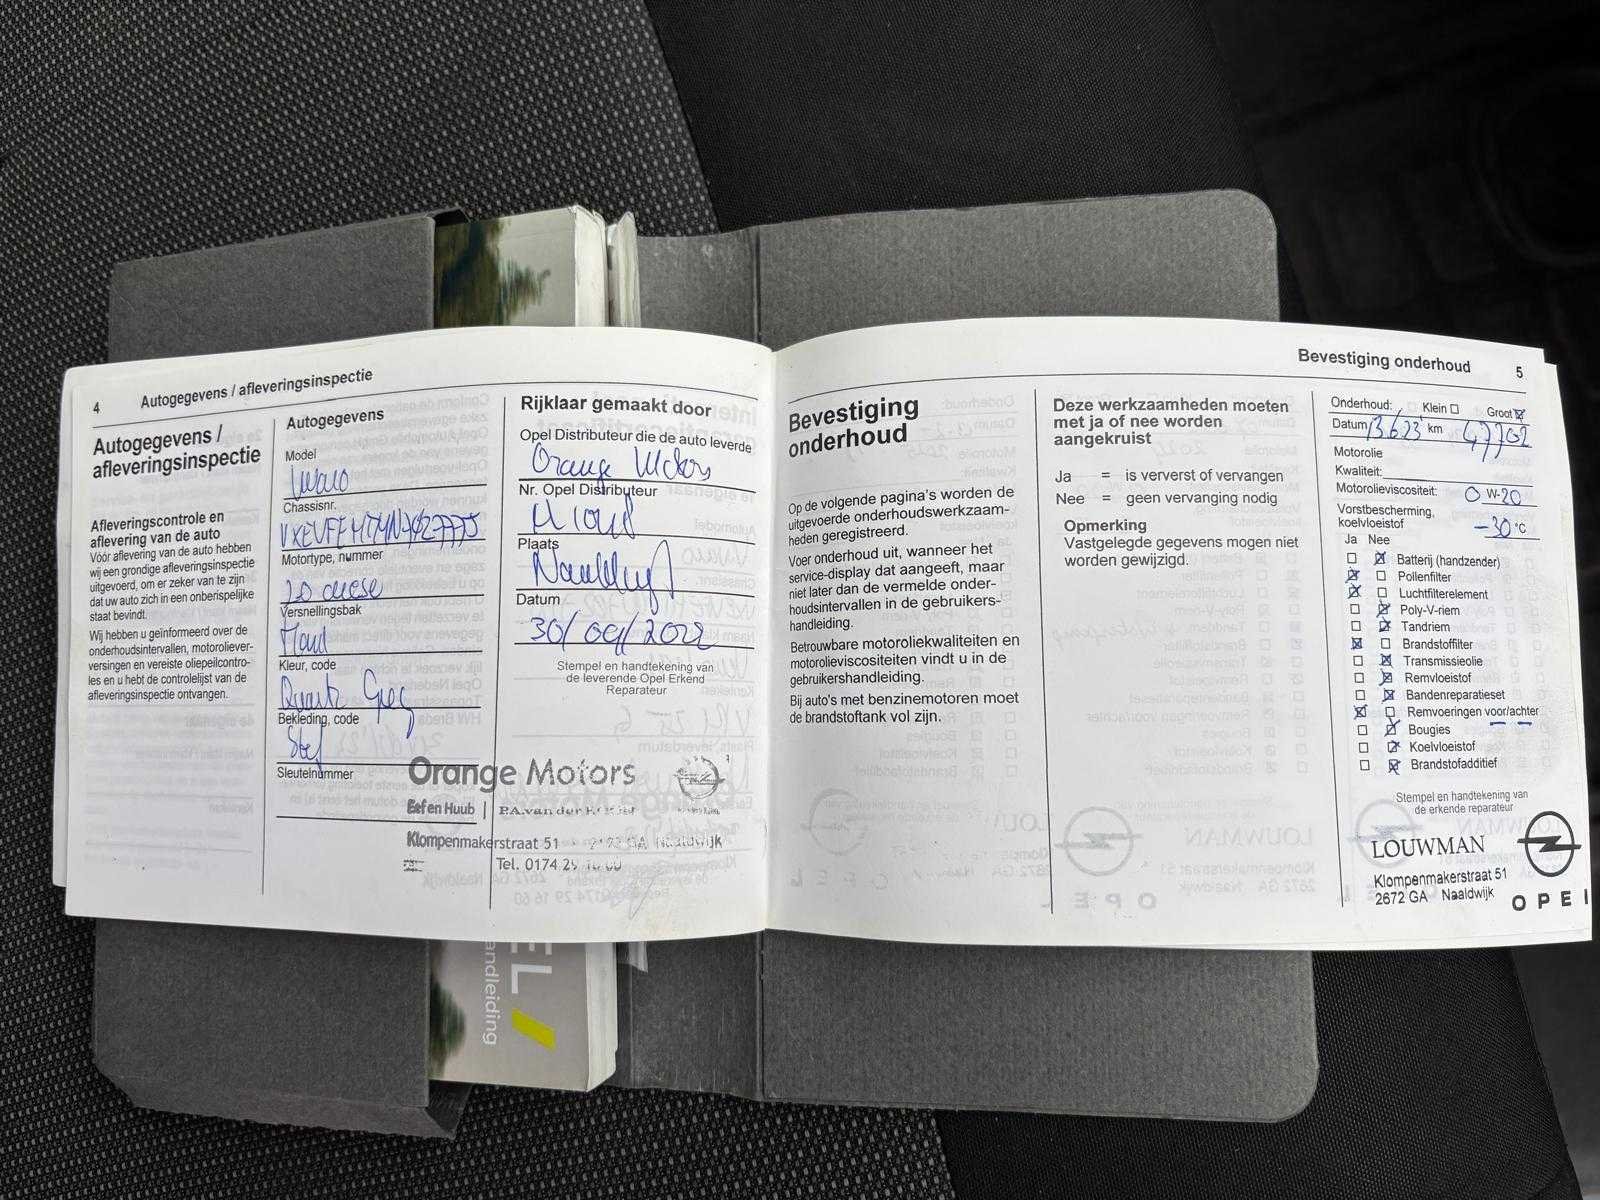 4 Autogegevens / afleveringsinspectie
Autogegevens /
afleveringsinspectie
Afleveringscontrole en
aflevering van de auto
Vóór aflevering van de auto hebben
wij een grondige afleveringsinspectie
uitgevoerd, om er zeker van te zijn
dat uw auto zich in een onberispelijke
staat bevindt.
Wij hebben u geïnformeerd over de
onderhoudsintervallen, motoroliever-
versingen en vereiste oliepeilcontro-
les en u hebt de controlelijst van de
afleveringsinspectie ontvangen.
Autogegevens
Model
Vivaro
Chassisnr.
Motortype, nummer
2.0 diesel
Versnellingsbak
Hand
Kleur, code
Quartz Grey
Bekleding, code
Stof
Sleutelnummer
Rijklaar gemaakt door
Opel Distributeur die de auto leverde
Orange Motors
Nr. Opel Distributeur
Plaats
Naaldwijk
Datum
30/09/2022
Stempel en handtekening van
de leverende Opel Erkend
Reparateur
Orange Motors
Eef en Huub
Klompenmakerstraat 51 GA Naaldwijk
Tel. 0174 29
EL
andleiding
Bevestiging onderhoud 5
Bevestiging
onderhoud
Op de volgende pagina's worden de
uitgevoerde onderhoudswerkzaam-
heden geregistreerd.
Voer onderhoud uit, wanneer het
service-display dat aangeeft, maar
niet later dan de vermelde onder-
houdsintervallen in de gebruikers-
handleiding.
Betrouwbare motoroliekwaliteiten en
motorolieviscositeiten vindt u in de
gebruikershandleiding.
Bij auto's met benzinemotoren moet
de brandstoftank vol zijn.
Deze werkzaamheden moeten
met ja of nee worden
aangekruist
Ja = is ververst of vervangen
Nee = geen vervanging nodig
Opmerking
Vastgelegde gegevens mogen niet
worden gewijzigd.
Onderhoud: Klein Groot
Datum 13.6.23 km 47702
Motorolie
Kwaliteit:
Motorolieviscositeit: 0 W-20
Vorstbescherming,
koelvloeistof -30 °C
Ja Nee
Batterij (handzender)
Pollenfilter
Luchtfilterelement
Poly-V-riem
Tandriem
Brandstoffilter
Transmissieolie
Remvloeistof
Bandenreparatieset
Remvoeringen voor/achter
Bougies
Koelvloeistof
Brandstofadditief
Stempel en handtekening van
de erkende reparateur
LOUWMAN
Klompenmakerstraat 51
2672 GA Naaldwijk
OPEL